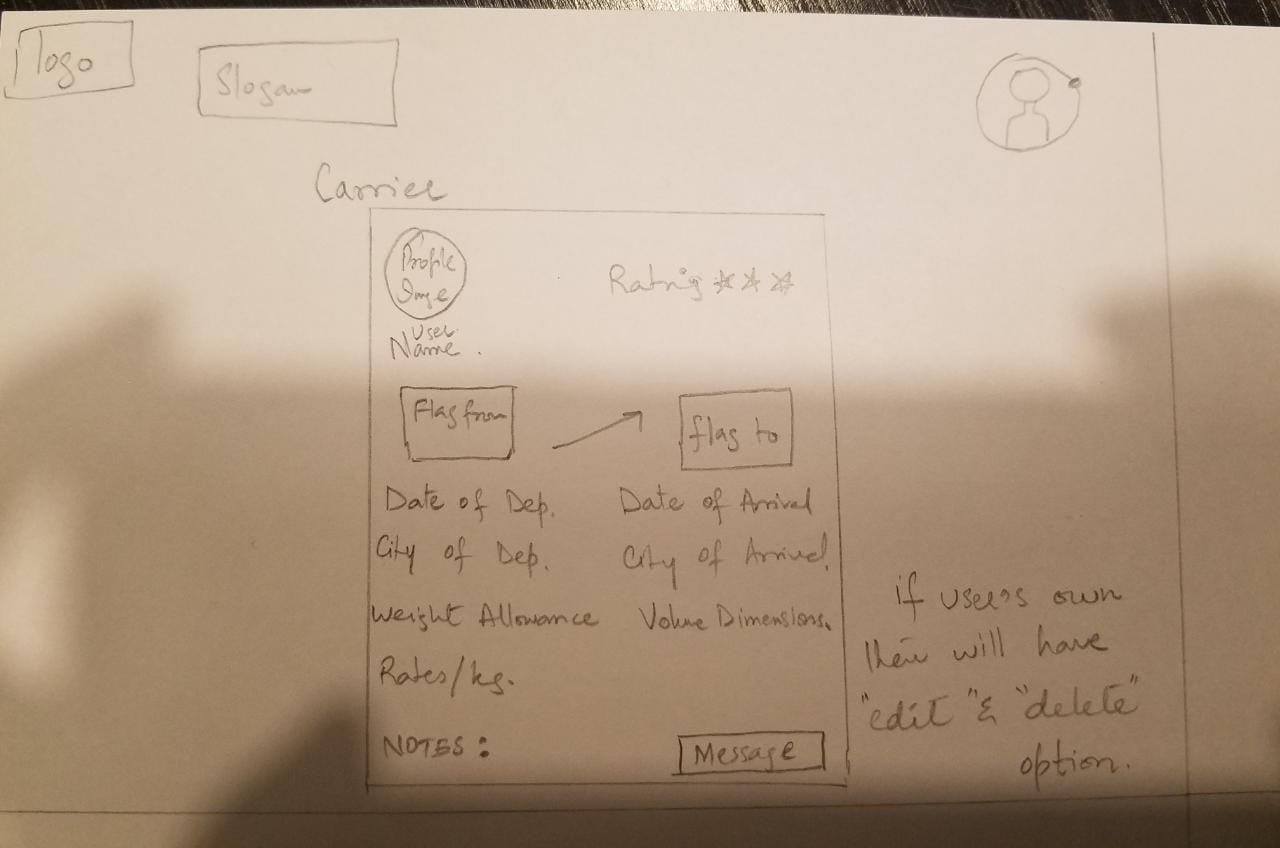 logo
Slogan
Carrier
Profile
Image
User
Name.
Rating
Flag from
flag to
Date of Dep.
Date of Arrival
City of Dep.
City of Arrival.
Weight Allowance
Volume Dimensions.
Rates/kg.
NOTES:
Message
if user's own
then will have
"edit" & "delete"
option.